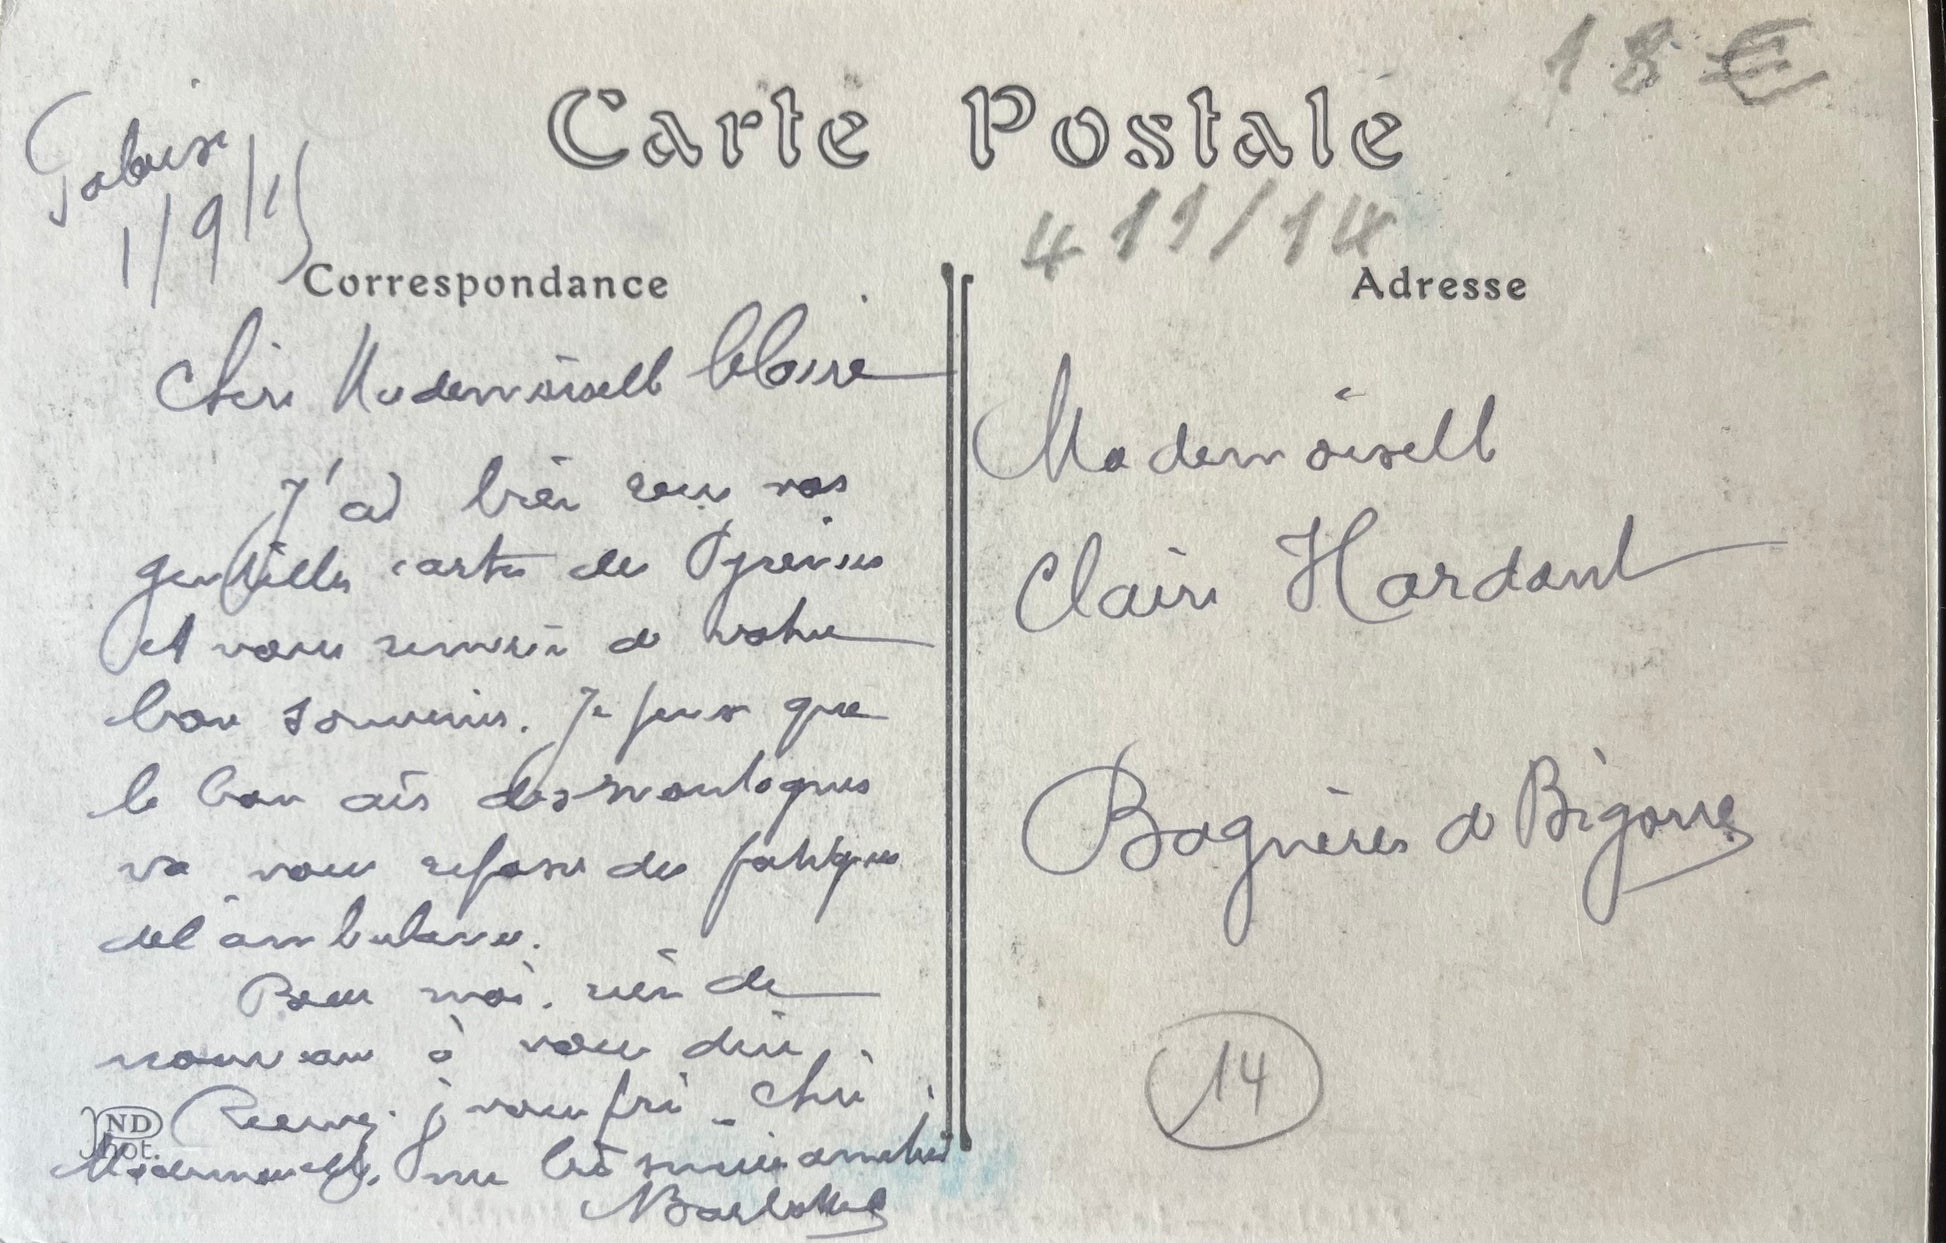 Carte Postale
18 €
1/9/15
411/14
Correspondance
Adresse
Chère Mademoiselle Claire
J'ai bien reçu vos
gentilles cartes des Pyrénées
et vous remercie de votre
bon souvenir. Je pense que
le bon air des montagnes
va vous reposer des fatigues
de l'ambulance.
Pour moi, rien de
nouveau à vous dire.
Recevez, je vous prie, Chère
Mademoiselle, mes très sincères amitiés
ND
Phot.
Mademoiselle
Claire Hardant
Bagnères de Bigorre
14